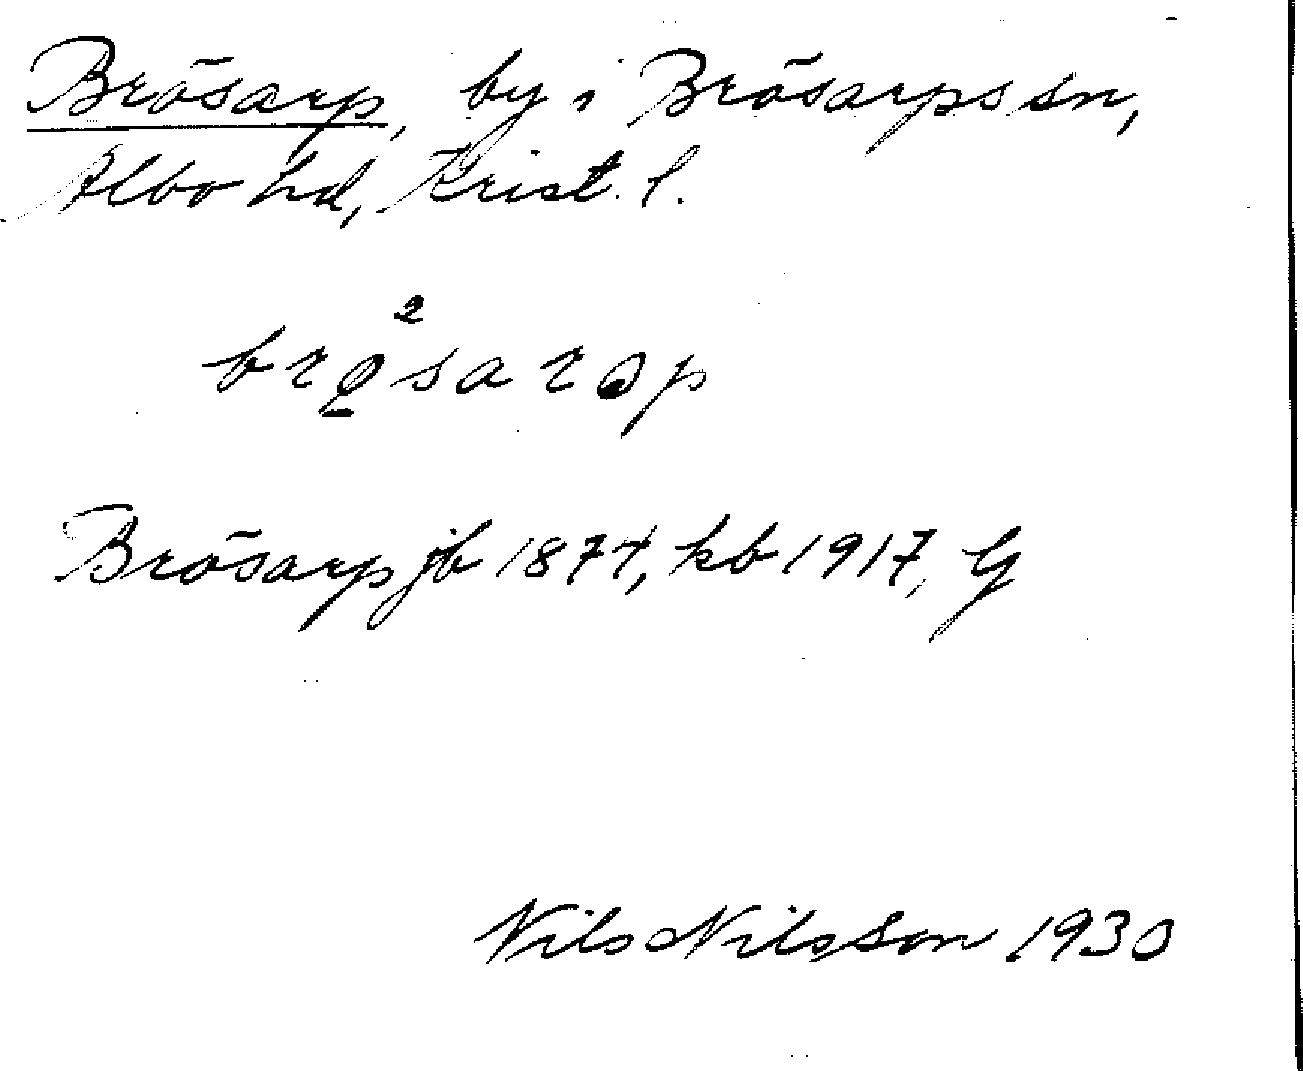 Brösarp, by i Brösarps sn,
Albo hd, Krist. l.
brø̱²sarəp
Brösarp jb 1874, kb 1917, G
Nils Nilsson 1930